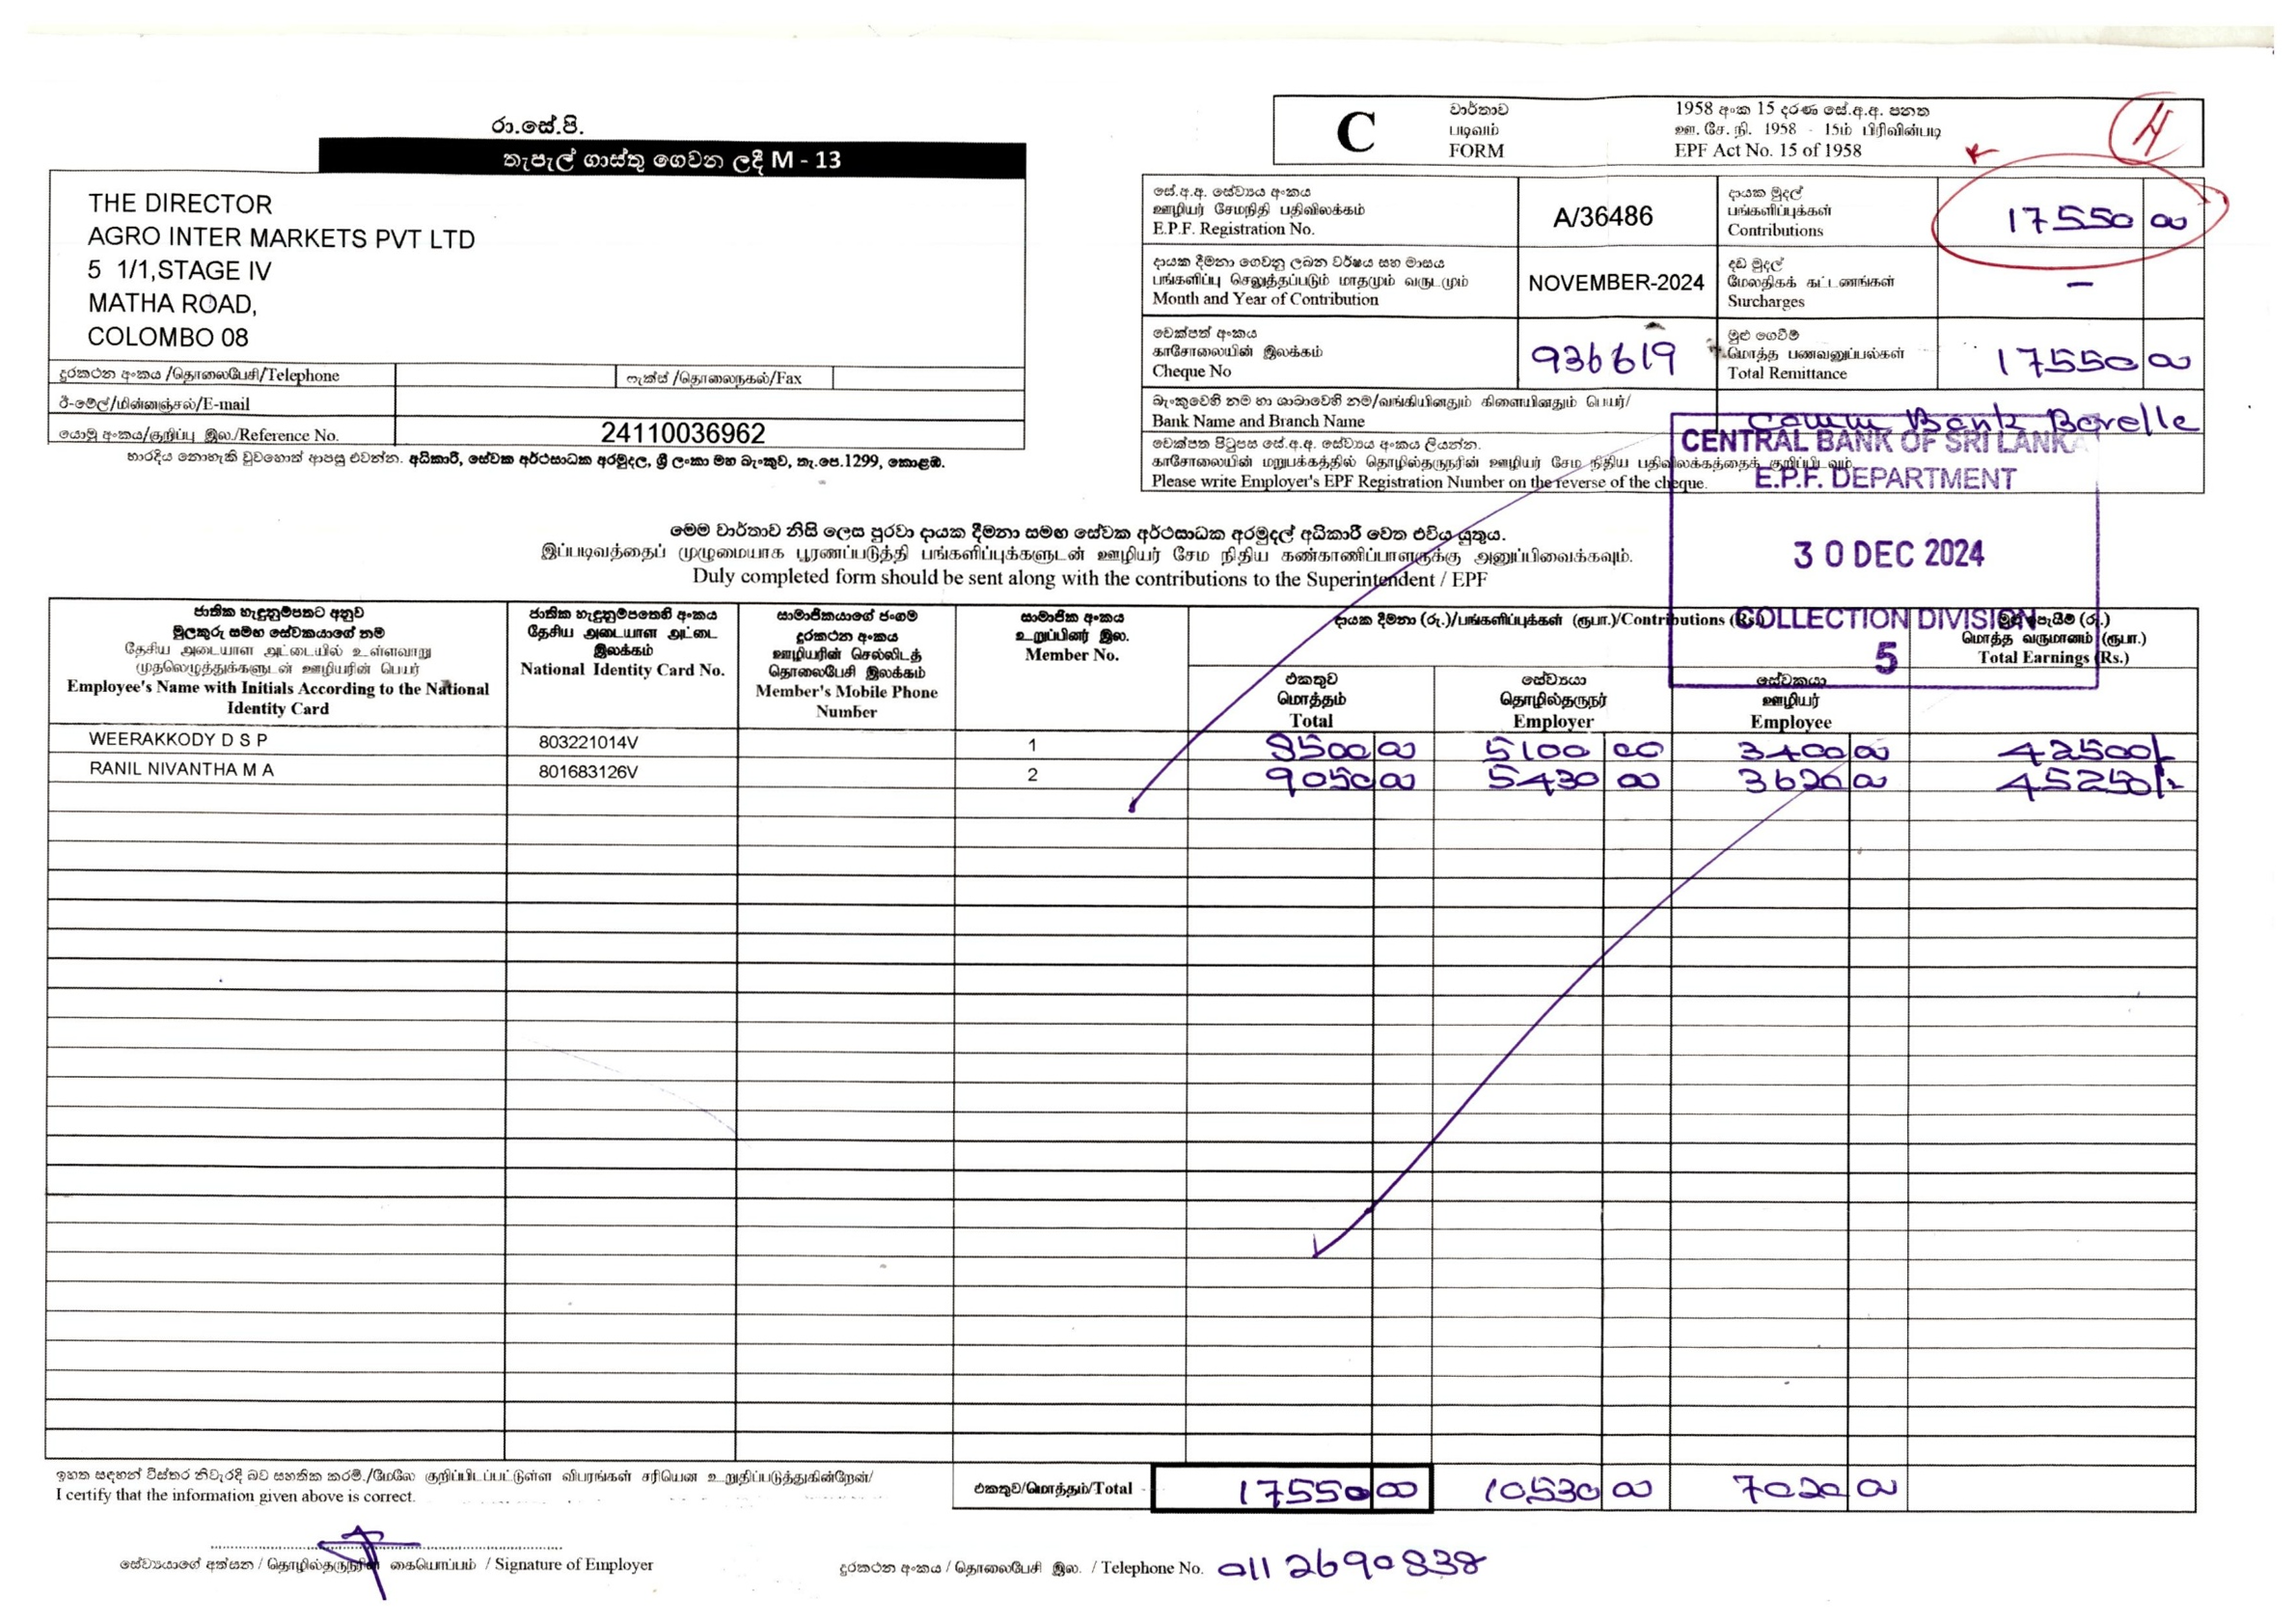 රා.සේ.පි.
තැපැල් ගාස්තු ගෙවන ලදී M - 13
THE DIRECTOR
AGRO INTER MARKETS PVT LTD
5 1/1,STAGE IV
MATHA ROAD,
COLOMBO 08
දුරකථන අංකය /தொலைபேசி/Telephone
ෆැක්ස් /தொலைநகல்/Fax
ඊ-මේල්/மின்னஞ்சல்/E-mail
යොමු අංකය/குறிப்பு இல./Reference No. 24110036962
භාරදිය නොහැකි වුවහොත් ආපසු එවන්න. අධිකාරී, සේවක අර්ථසාධක අරමුදල, ශ්‍රී ලංකා මහ බැංකුව, තැ.පෙ.1299, කොළඹ.
C
වාර්තාව
படிவம்
FORM
1958 අංක 15 දරණ සේ.අ.අ. පනත
ஊ. சே. நி. 1958 - 15ம் பிரிவின்படி
EPF Act No. 15 of 1958
H
සේ.අ.අ. සේව්‍යය අංකය
ஊழியர் சேமநிதி பதிவிலக்கம்
E.P.F. Registration No.
A/36486
දායක මුදල්
பங்களிப்புக்கள்
Contributions
17550 00
දායක දීමනා ගෙවනු ලබන වර්ෂය සහ මාසය
பங்களிப்பு செலுத்தப்படும் மாதமும் வருடமும்
Month and Year of Contribution
NOVEMBER-2024
දඩ මුදල්
மேலதிகக் கட்டணங்கள்
Surcharges
–
චෙක්පත් අංකය
காசோலையின் இலக்கம்
Cheque No
936619
මුළු ගෙවීම්
மொத்த பணவனுப்பல்கள்
Total Remittance
17550 00
බැංකුවෙහි නම හා ශාඛාවෙහි නම/வங்கியினதும் கிளையினதும் பெயர்/
Bank Name and Branch Name
Comm Bank Borelle
චෙක්පත පිටුපස සේ.අ.අ. සේව්‍යය අංකය ලියන්න.
காசோலையின் மறுபக்கத்தில் தொழில்தருநரின் ஊழியர் சேம நிதிய பதிவிலக்கத்தைக் குறிப்பிடவும்.
Please write Employer's EPF Registration Number on the reverse of the cheque.
CENTRAL BANK OF SRI LANKA
E.P.F. DEPARTMENT
30 DEC 2024
COLLECTION DIVISION
5
මෙම වාර්තාව නිසි ලෙස පුරවා දායක දීමනා සමඟ සේවක අර්ථසාධක අරමුදල් අධිකාරී වෙත එවිය යුතුය.
இப்படிவத்தைப் முழுமையாக பூரணப்படுத்தி பங்களிப்புக்களுடன் ஊழியர் சேம நிதிய கண்காணிப்பாளருக்கு அனுப்பிவைக்கவும்.
Duly completed form should be sent along with the contributions to the Superintendent / EPF
ජාතික හැඳුනුම්පතට අනුව
මුලකුරු සමඟ සේවකයාගේ නම
தேசிய அடையாள அட்டையில் உள்ளவாறு
முதலெழுத்துக்களுடன் ஊழியரின் பெயர்
Employee's Name with Initials According to the National
Identity Card
ජාතික හැඳුනුම්පතෙහි අංකය
தேசிய அடையாள அட்டை
இலக்கம்
National Identity Card No.
සාමාජිකයාගේ ජංගම
දුරකථන අංකය
ஊழியரின் செல்லிடத்
தொலைபேசி இலக்கம்
Member's Mobile Phone
Number
සාමාජික අංකය
உறுப்பினர் இல.
Member No.
දායක දීමනා (රු.)/பங்களிப்புக்கள் (ரூபா.)/Contributions (Rs.)
එකතුව
மொத்தம்
Total
සේව්‍යයා
தொழில்தருநர்
Employer
සේවකයා
ஊழியர்
Employee
මුළු ඉපැයීම් (රු.)
மொத்த வருமானம் (ரூபா.)
Total Earnings (Rs.)
WEERAKKODY D S P 803221014V 1 8500 00 5100 00 3400 00 42500/-
RANIL NIVANTHA M A 801683126V 2 9050 00 5430 00 3620 00 45250/-
ඉහත සඳහන් විස්තර නිවැරදි බව සහතික කරමි./மேலே குறிப்பிடப்பட்டுள்ள விபரங்கள் சரியென உறுதிப்படுத்துகின்றேன்/
I certify that the information given above is correct.
එකතුව/மொத்தம்/Total 17550 00 10530 00 7020 00
සේව්‍යයාගේ අත්සන / தொழில்தருநரின் கையொப்பம் / Signature of Employer
දුරකථන අංකය / தொலைபேசி இல. / Telephone No. 011 2690838